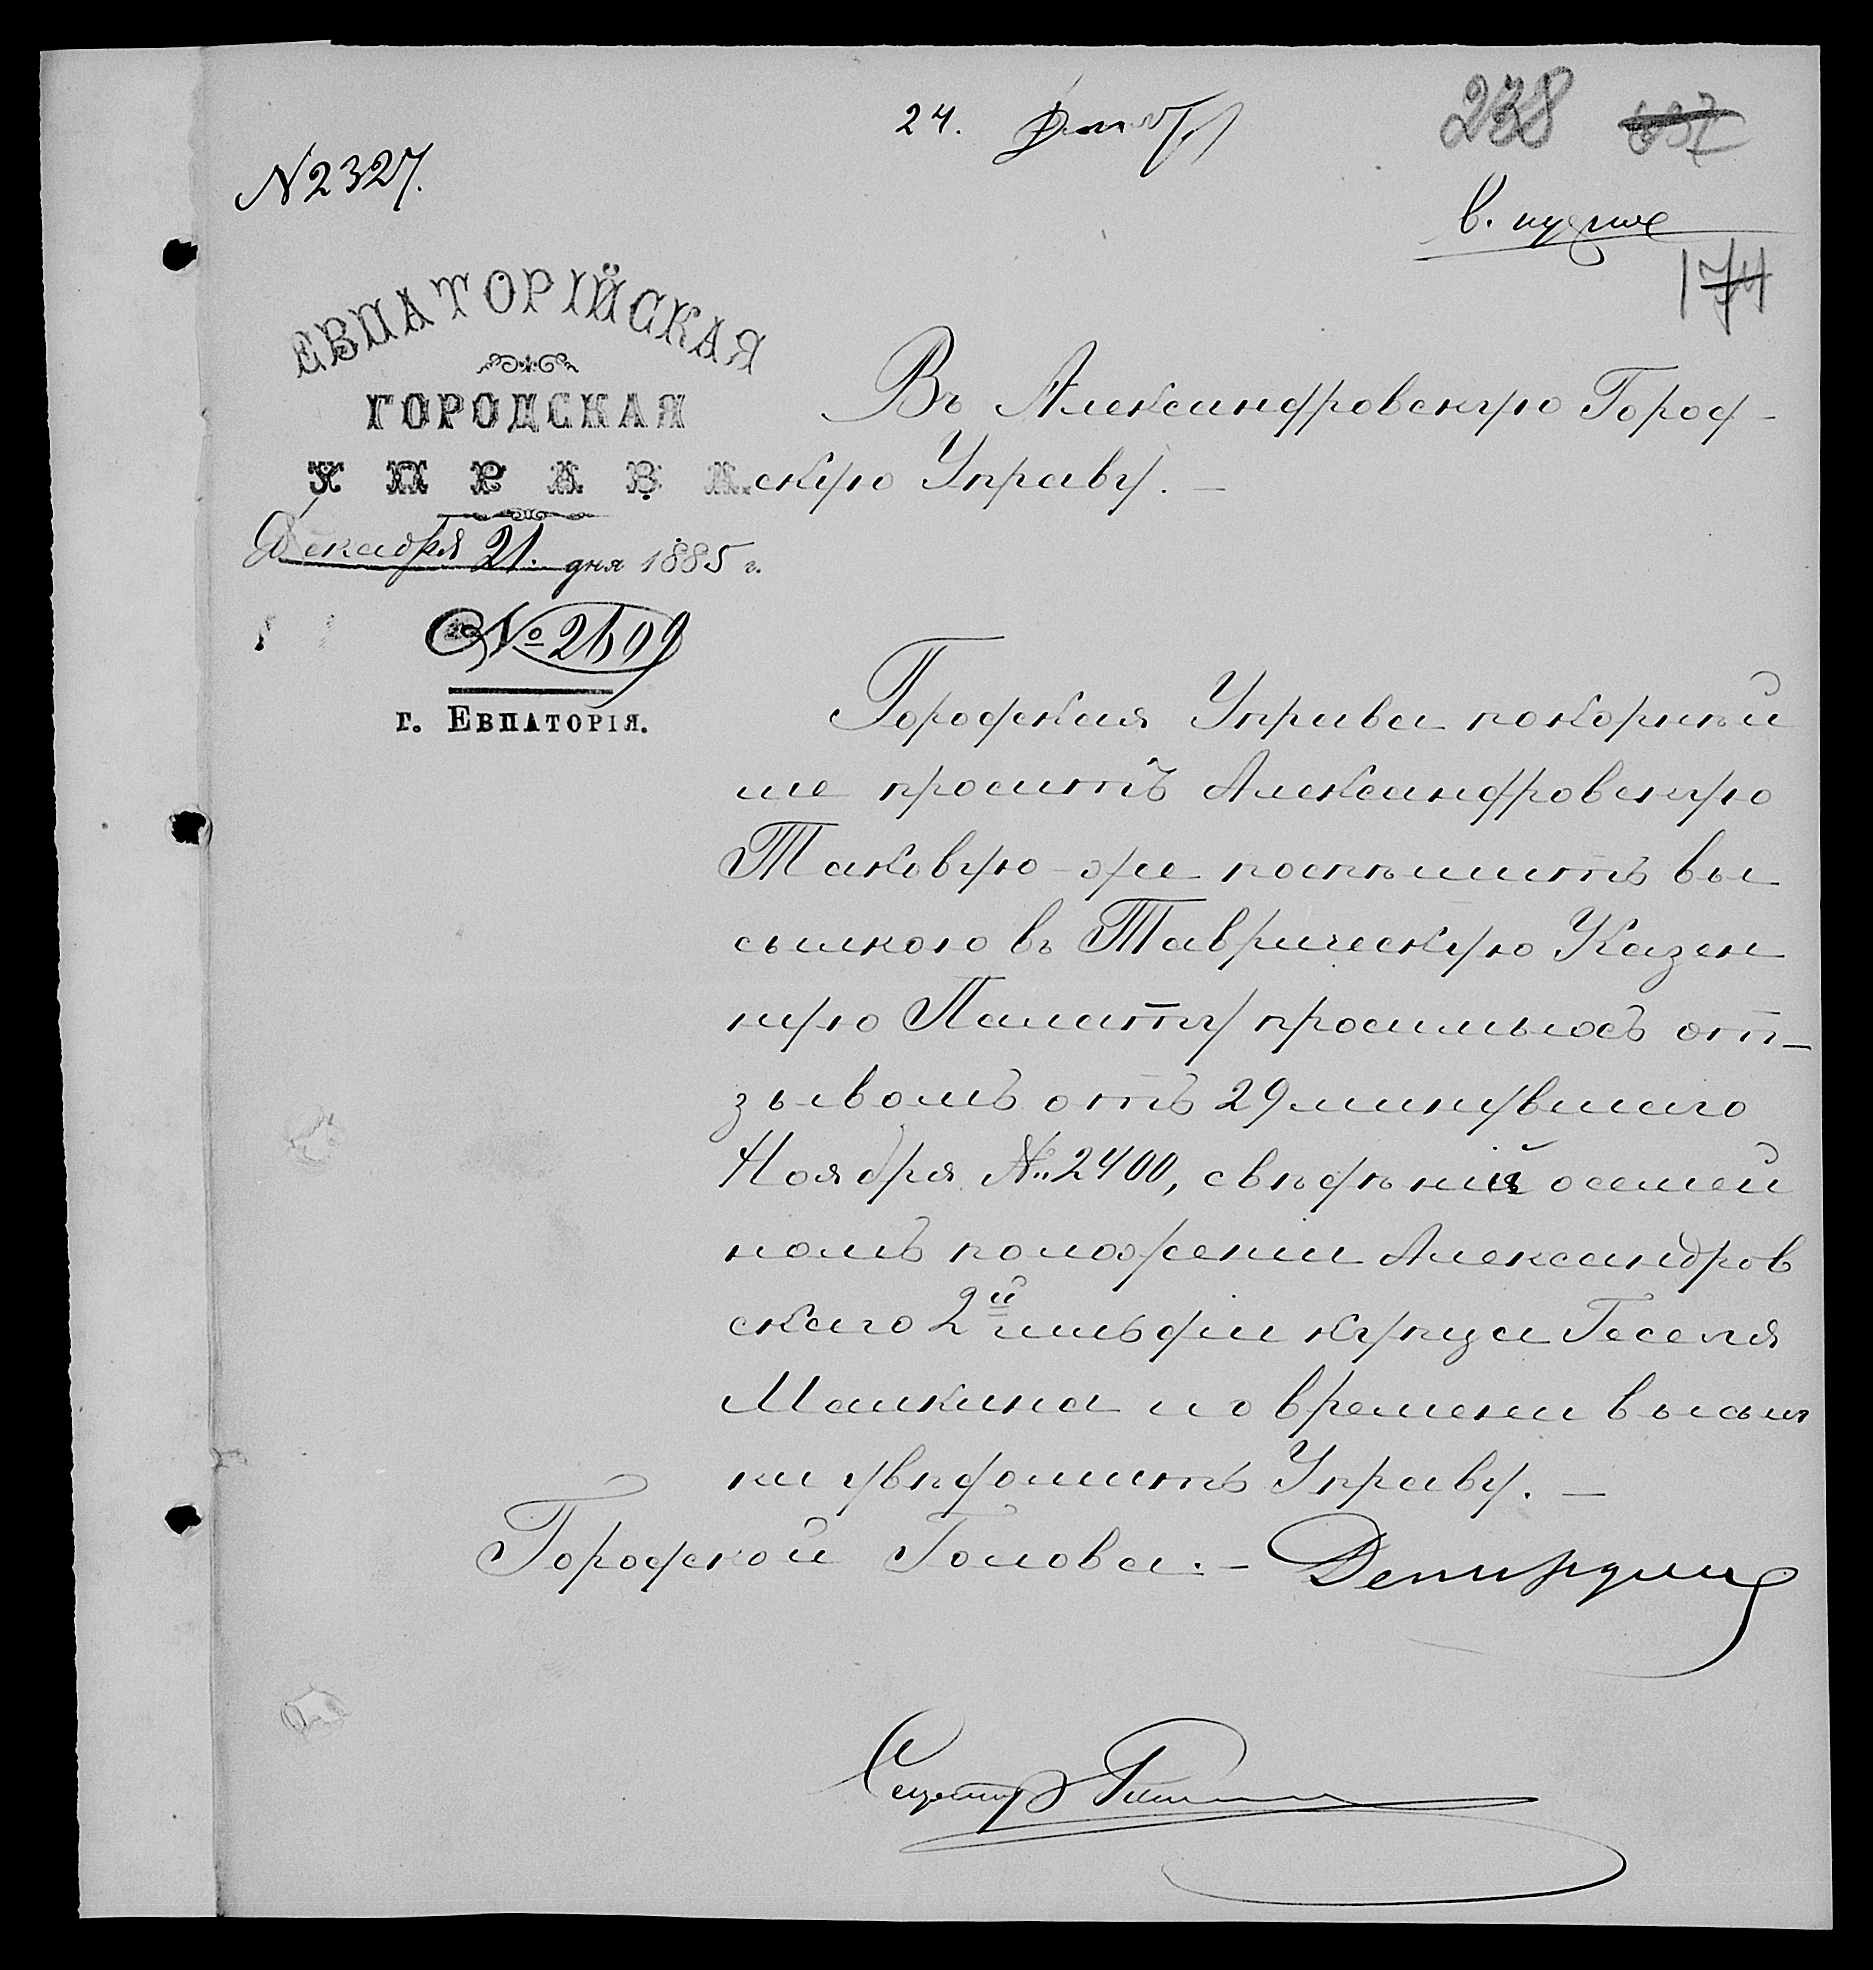 24. Декабря
238 637
№ 2327.
174
ЕВПАТОРІЙСКАЯ
ГОРОДСКАЯ
УПРАВА.
Декабря 21. дня 1885 г.
№ 2609
г. ЕВПАТОРІЯ.
Въ Александровскую Город-
скую Управу. —
Городская Управа покорнѣй
ше проситъ Александровскую
Таковую-же поспѣшить вы
сылкою въ Таврическую Казен
ную Палату просимыхъ от-
зывомъ отъ 29 минувшаго
Ноября № 2400, свѣдѣній о семей
номъ положеніи Александров
скаго 2й гильдіи купца Геселя
Машкина и о времени высыл
ки увѣдомить Управу. —
Городской Голова. —
Секретарь